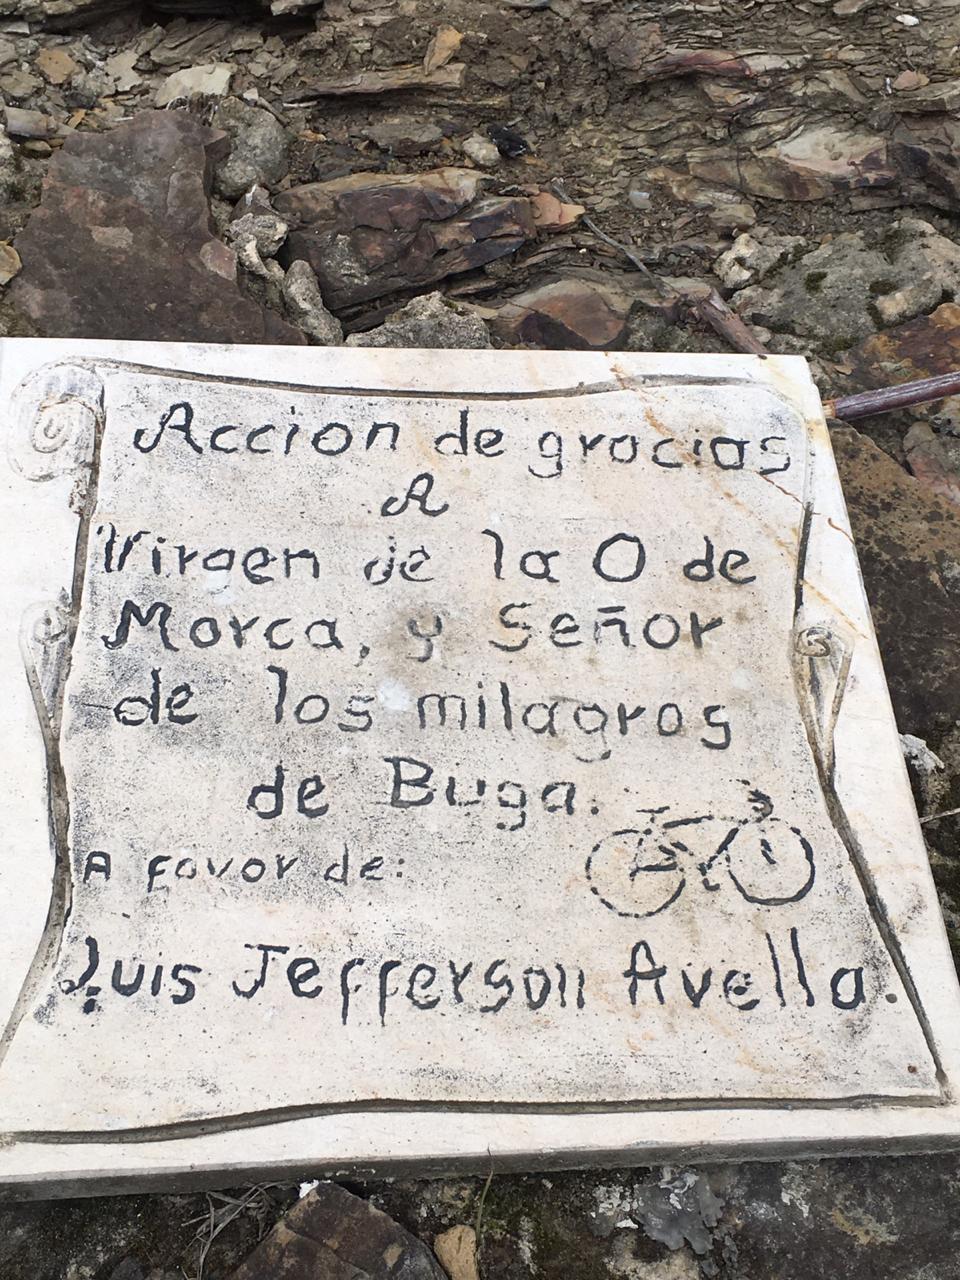 Accion de gracias
A
Virgen de la O de
Morca, y Señor
de los milagros
de Buga.
A favor de:
Luis Jefferson Avella.